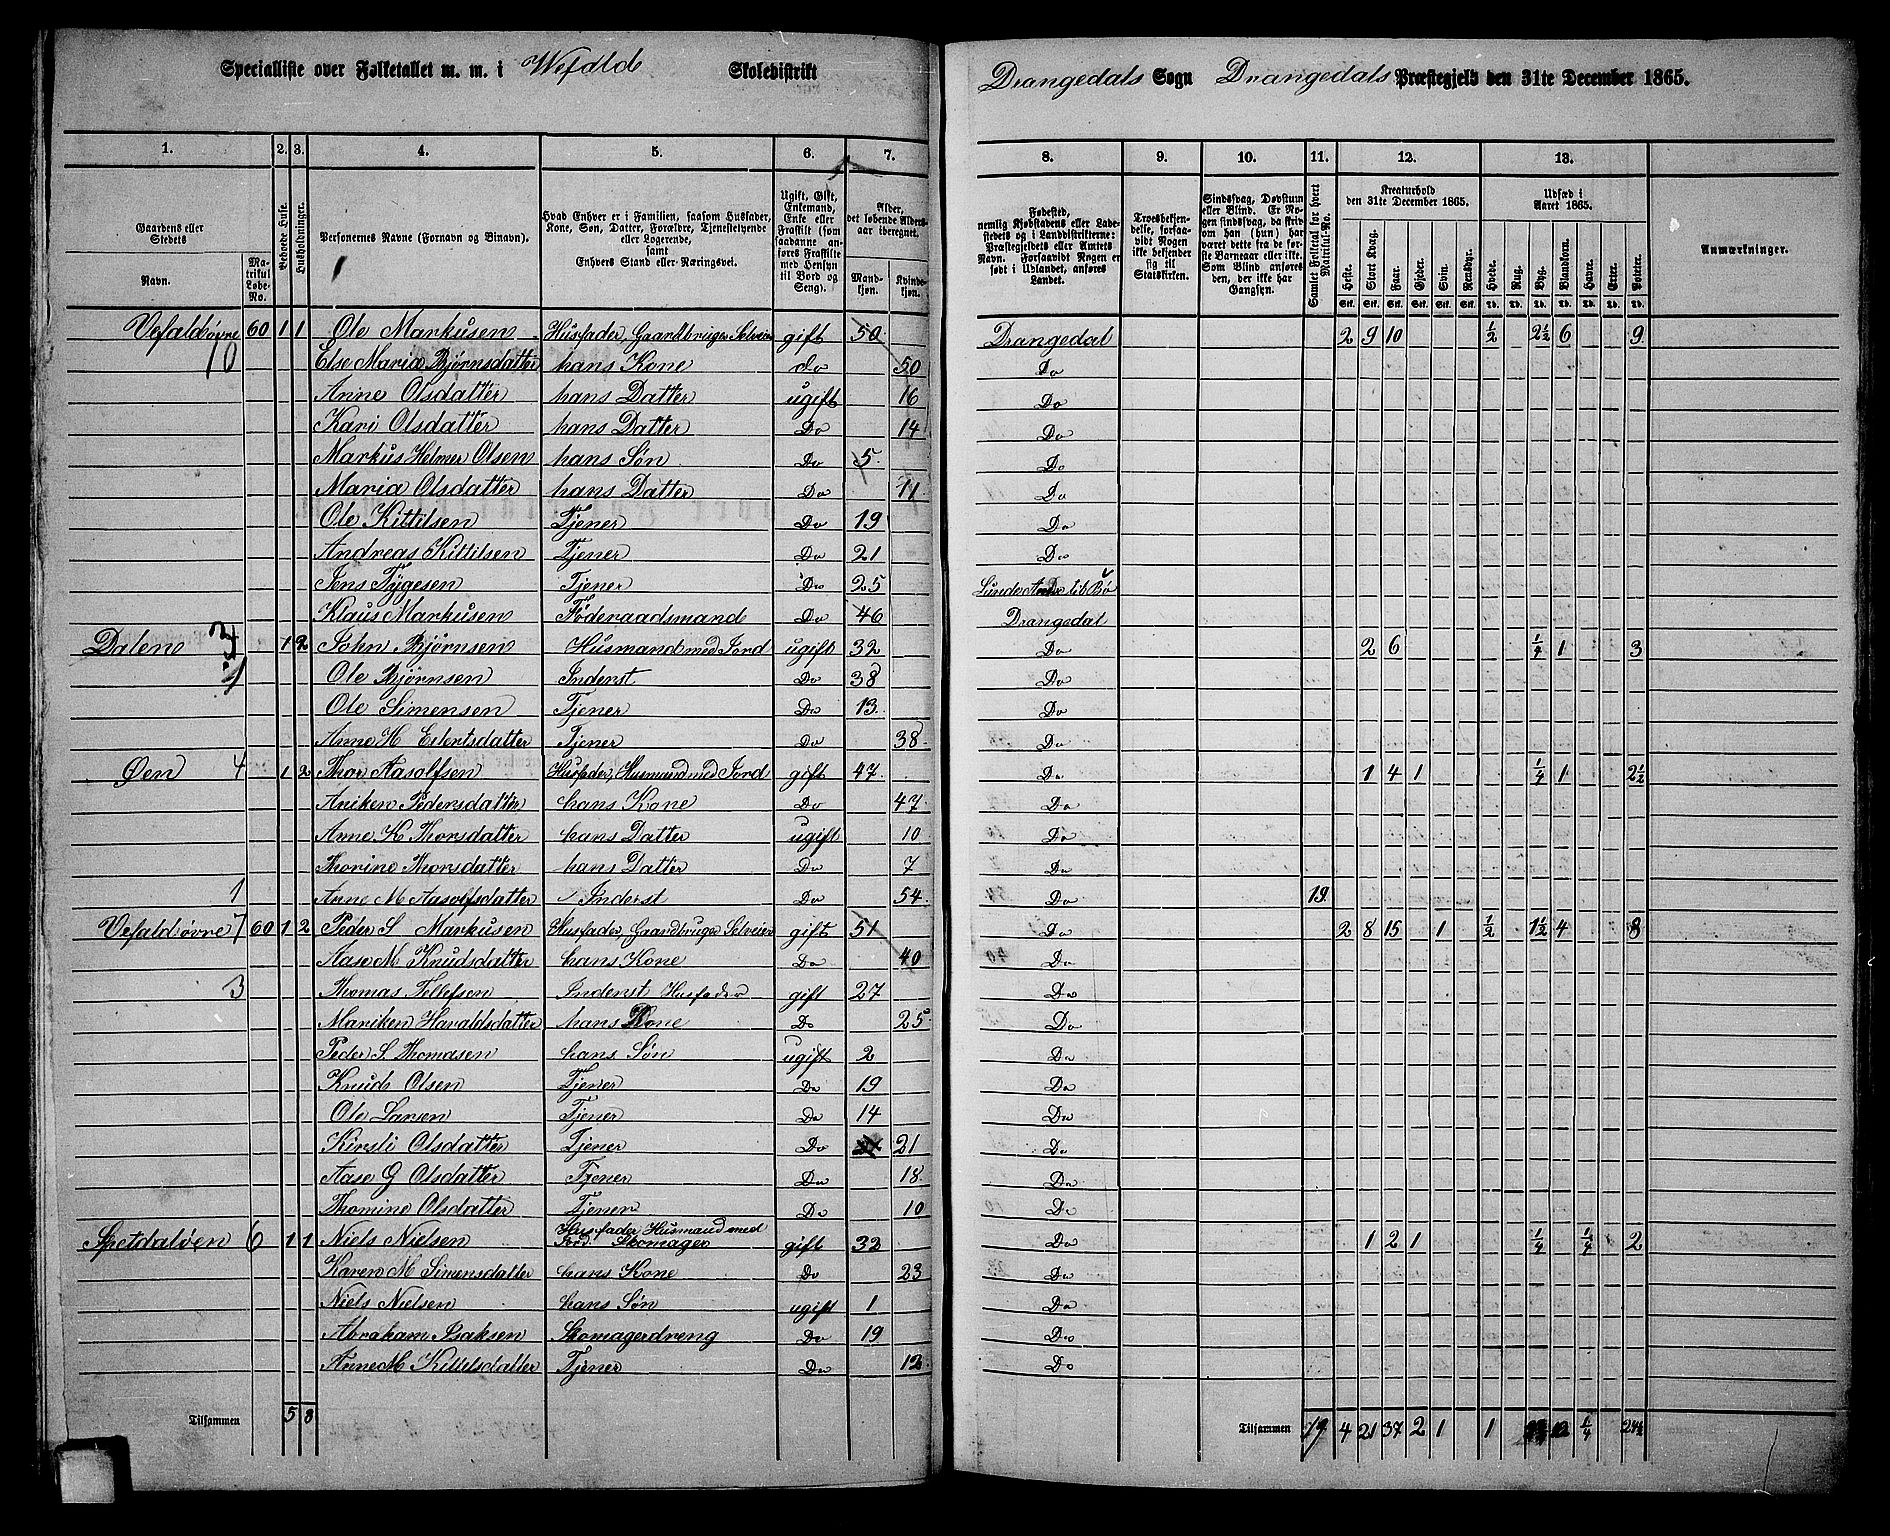 Specialliste over Folketallet m. m. i Wefald Skoledistrikt Drangedals Sogn Drangedals Præstegjeld den 31te December 1865.
1. 2. 3. 4. 5. 6. 7. 8. 9. 10. 11. 12. 13.
Gaardens eller Stedets Navn. Matrikul Løbe-No. Beboede Huse. Husholdninger. Personernes Navne (Fornavn og Binavn). Hvad Enhver er i Familien, saasom Husfader, Kone, Søn, Datter, Forældre, Tjenestetyende eller Logerende, samt Enhvers Stand eller Næringsvei. Ugift, Gift, Enkemand, Enke eller Fraskilt (som saadanne anføres Fraskilte med Hensyn til Bord og Seng). Alder, det løbende Aldersaar iberegnet. Mandkjøn. Kvindekjøn. Fødested, nemlig Kjøbstadens eller Ladestedets og i Landdistrikterne: Præstegjeldets eller Amtets Navn. Forsaavidt Nogen er født i Udlandet, anføres Landet. Troesbekjendelse, forsaavidt Nogen ikke bekjender sig til Statskirken. Sindssvag, Døvstum eller Blind. Er Nogen sindssvag, da skrives om han (hun) har været dette fra de første Barneaar eller ikke. Som Blind anføres den, der ikke har Gangsyn. Samlet Folketal for hvert Matrikul-No. Kreaturhold den 31te December 1865. Heste. Stort Kvæg. Faar. Gjeder. Svin. Rensdyr. Udsæd i Aaret 1865. Hvede. Rug. Byg. Blandkorn. Havre. Erter. Poteter. Anmærkninger.
Vefald øvre 60 1 1 Ole Markusen Husfader, Gaardbruger Selveier gift 50 Drangedal 2 9 10 1/2 2 1/2 6 9
10 Else Maria Bjørnsdatter hans Kone do 50 Do
Anne Olsdatter hans Datter ugift 16 Do
Kari Olsdatter hans Datter Do 14 Do
Markus Helmer Olsen hans Søn Do 5 Do
Maria Olsdatter hans Datter Do 11 Do
Ole Kittilsen Tjener Do 19 Do
Andreas Kittilsen Tjener Do 21 Do
Jens Tygesen Tjener Do 25 Lunde til Bø
Klaus Markusen Föderaadsmand Do 46 Drangedal
Dalen 3 1 2 John Bjørnsen Husmand med Jord ugift 32 Do 2 6 1/4 1 3
1 Ole Bjørnsen Inderst Do 38 Do
Ole Simensen Tjener Do 13 Do
Anne H Eilertsdatter Tjener Do 38 Do
Øen 4 1 2 Thor Aasolfsen Husfader, Husmand med Jord gift 47 Do 1 4 1 1/4 1 2 1/2
Aniken Pedersdatter hans Kone Do 47 Do
Anne K Thorsdatter hans Datter ugift 10 Do
Thorine Thorsdatter hans Datter Do 7 Do
1 Anne M Aasolfsdatter Inderst Do 54 Do 19
Vefald øvre 7 60 1 2 Peder S Markusen Husfader, Gaardbruger Selveier gift 51 Do 2 8 15 1 1/2 1 1/2 4 8
Aase M Knudsdatter hans Kone Do 40 Do
3 Thomas Tellefsen Inderst Husfader gift 27 Do
Mariken Haraldsdatter hans Kone Do 25 Do
Peder S. Thomasen hans Søn ugift 2 Do
Knud Olsen Tjener Do 19 Do
Ole Larsen Tjener Do 14 Do
Kirsti Olsdatter Tjener Do 21 Do
Aase G Olsdatter Tjener Do 18 Do
Thomine Olsdatter Tjener Do 10 Do
Spetdaløen 6 1 1 Niels Nielsen Husfader Husmand med Jord Skomager gift 32 Do 1 2 1 1/4 1/4 2
Karen M Simensdatter hans Kone Do 23 Do
Niels Nielsen hans Søn ugift 1 Do
Abraham Isaksen Skomagerdreng Do 19 Do
Anne M Kittilsdatter Tjener Do 12 Do
Tilsammen 5 8 Tilsammen 4 21 37 2 1 1 12 1/4 24 1/2